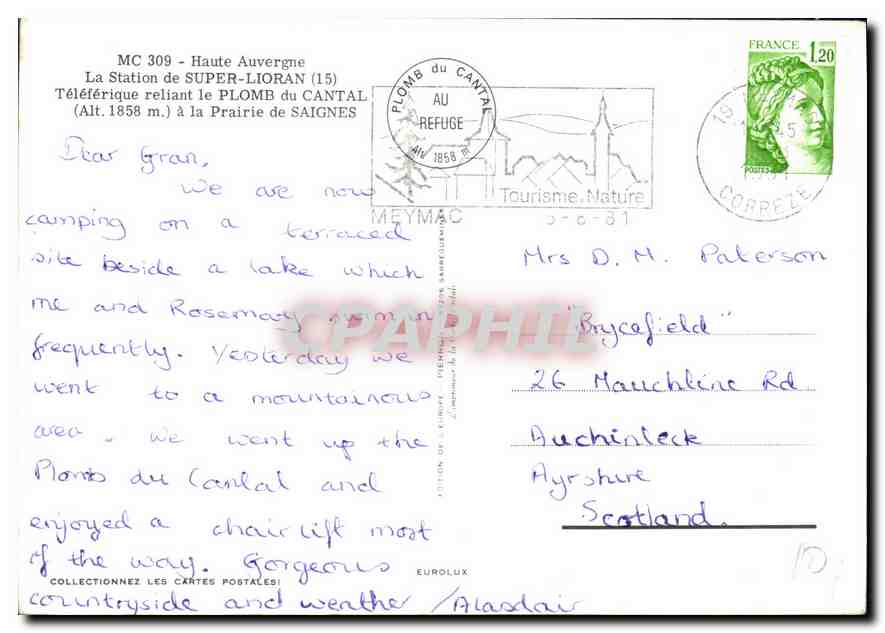 MC 309 - Haute Auvergne
La Station de SUPER-LIORAN (15)
Téléférique reliant le PLOMB du CANTAL
(Alt. 1858 m.) à la Prairie de SAIGNES
PLOMB du CANTAL
AU
REFUGE
Alt. 1858 m
Tourisme, Nature
MEYMAC
CORREZE
FRANCE 1,20
POSTES
Dear Gran,
We are now
camping on a terraced
site beside a lake which
me and Rosemary swim in
frequently. Yesterday we
went to a mountainous
area. We went up the
Plomb du Cantal and
enjoyed a chairlift most
of the way. Gorgeous
countryside and weather / Alasdair
Mrs D. M. Paterson
"Brycefield"
26 Mauchline Rd
Auchinleck
Ayrshire
Scotland.
EDITION DE L'EUROPE PIERRON SARREGUEMINES
COLLECTIONNEZ LES CARTES POSTALES!
EUROLUX
CPAPHIL